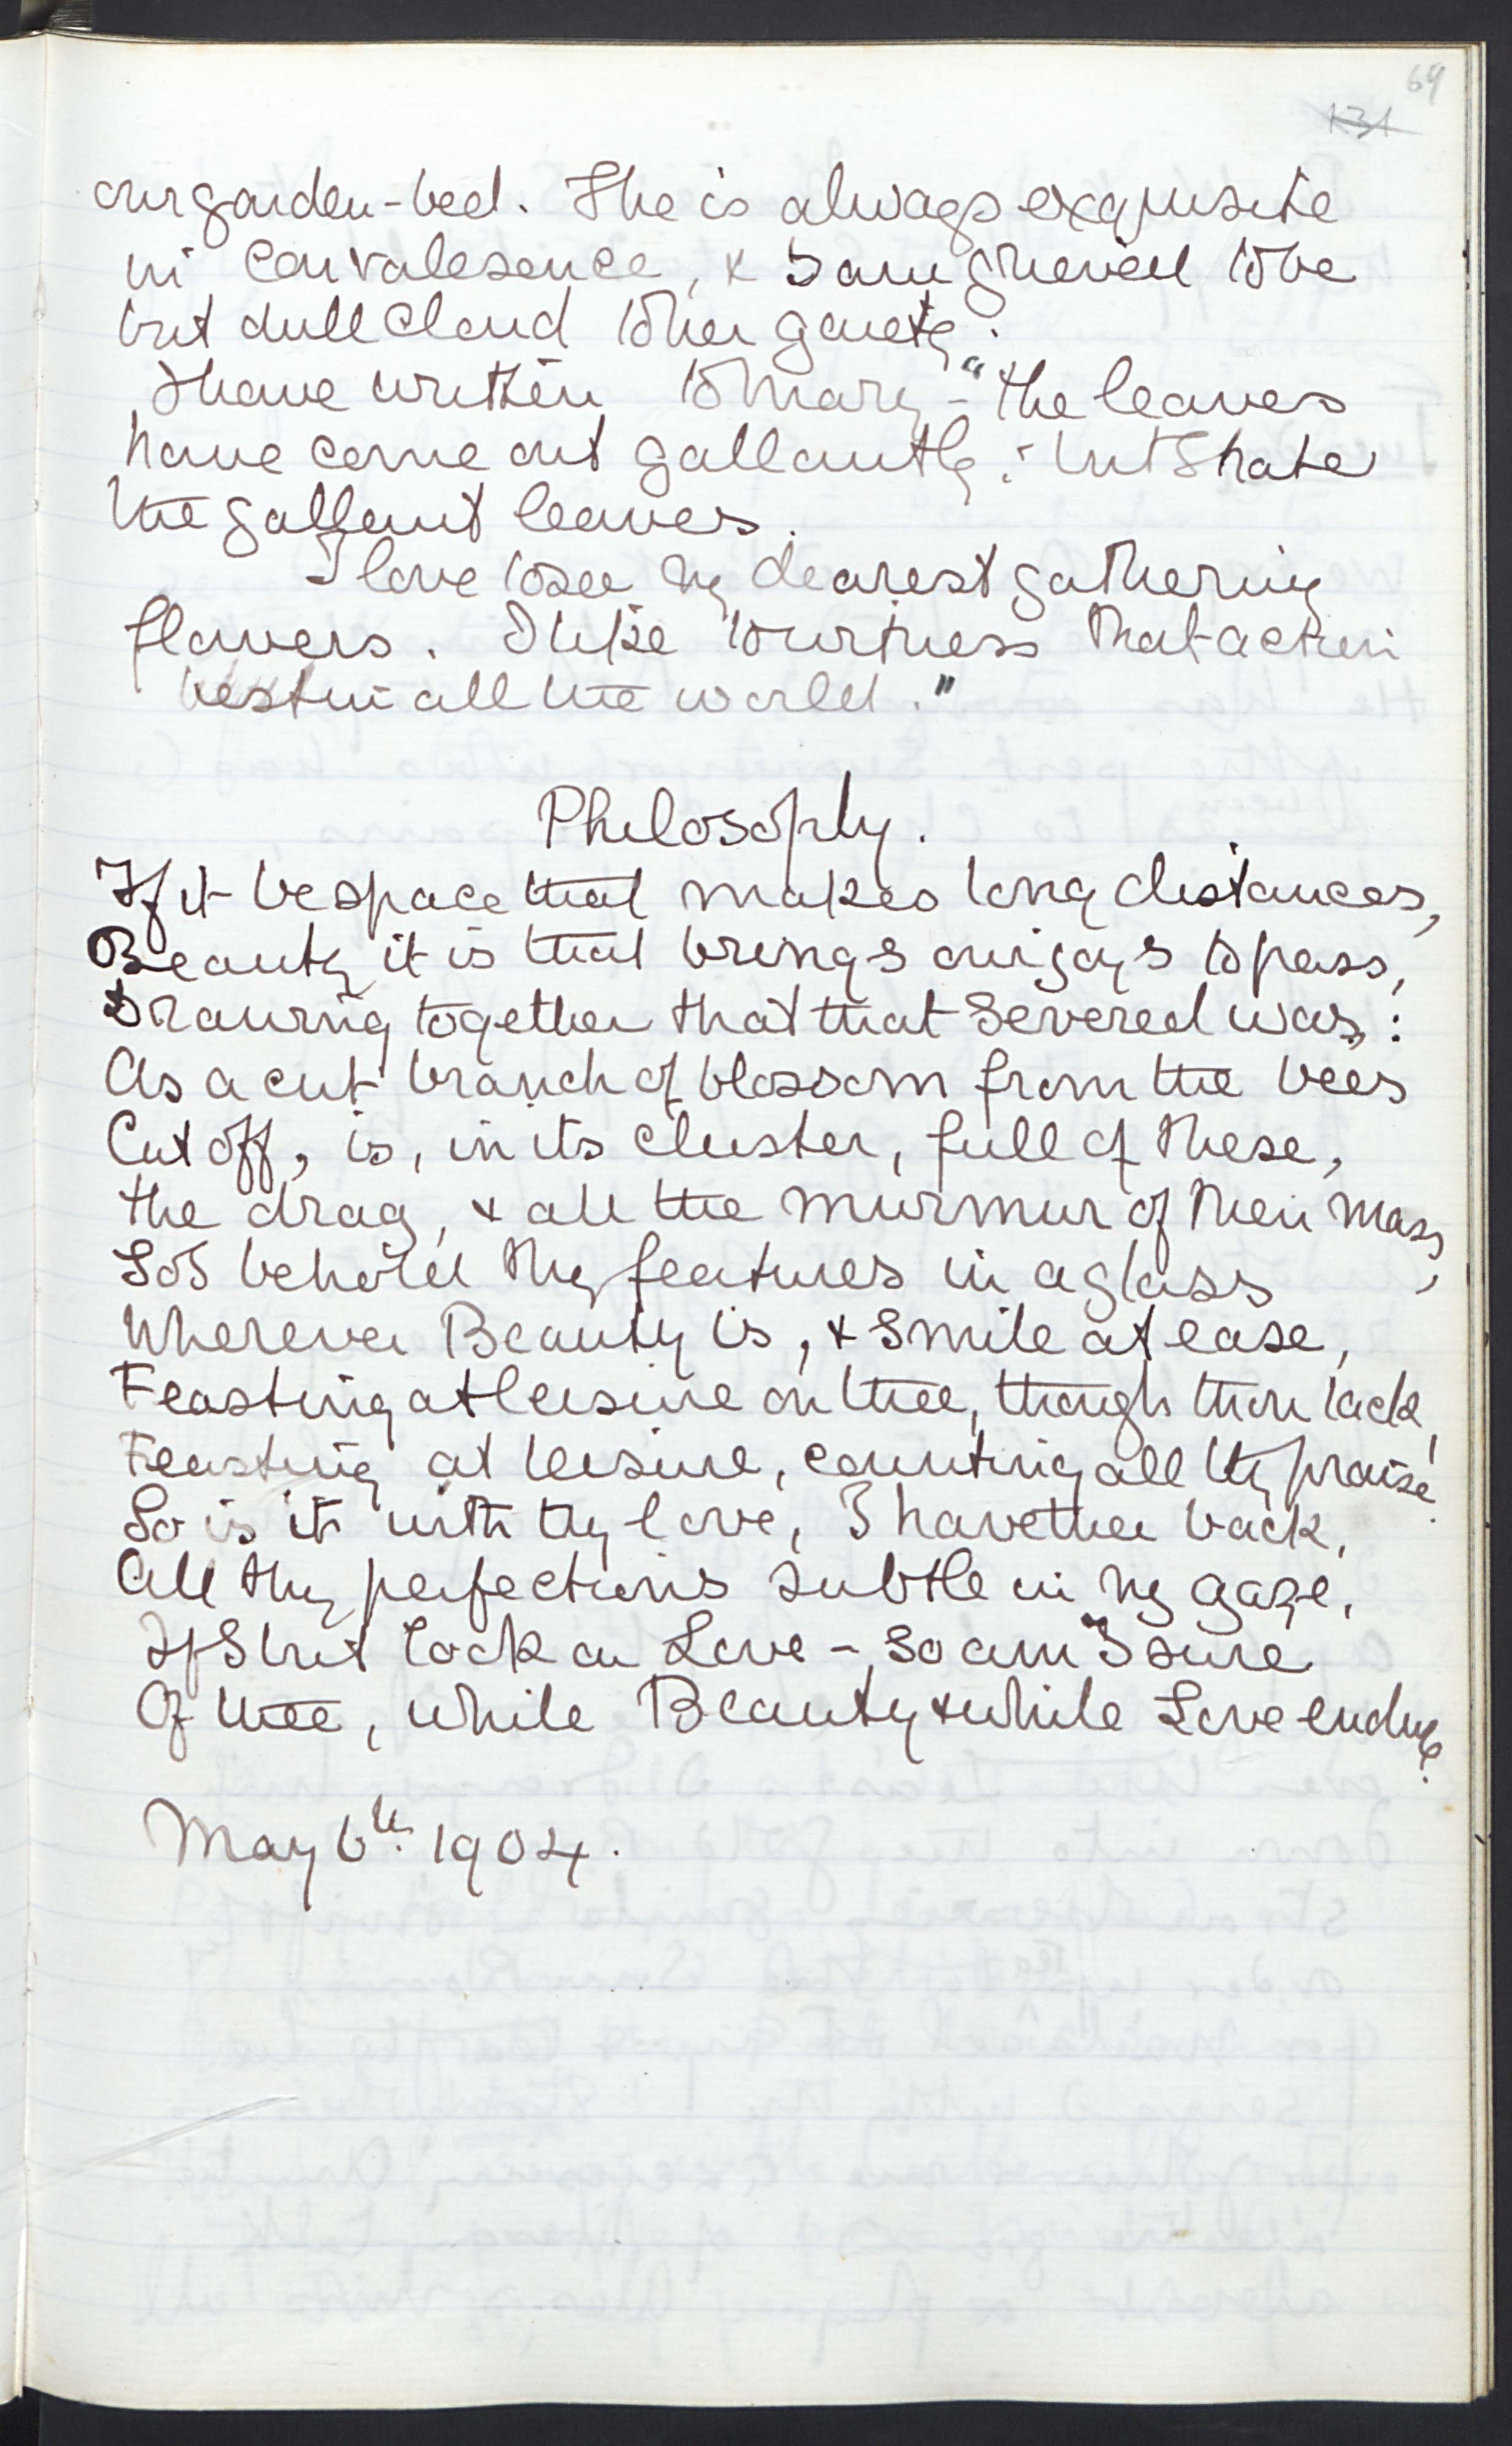 69
131
our garden-bed. She is always exquisite
in convalesence, & I am grieved to be
but dull cloud to her gaiety.
I have written to Mary - "the leaves
have come out gallantly: but I hate
the gallant leaves.
I love to see my dearest gathering
flowers. I like to witness that action
best in all the world."
Philosophy.
If it be space that makes long distances,
Beauty it is that brings our joys to pass,
Drawing together that that severed was:
As a cut branch of blossom from the bees
Cut off, is, in its cluster, full of these,
the drag, & all the murmur of their mass,
So I behold thy features in a glass
Wherever Beauty is, & smile at ease,
Feasting at leisure on thee, though thou lack,
Feasting at leisure, counting all thy praise!
So is it with thy love, I have thee back,
All thy perfections subtle in my gaze,
If I but look on Love - so am I sure
Of thee, while Beauty & while Love endure.
May 6th. 1904.